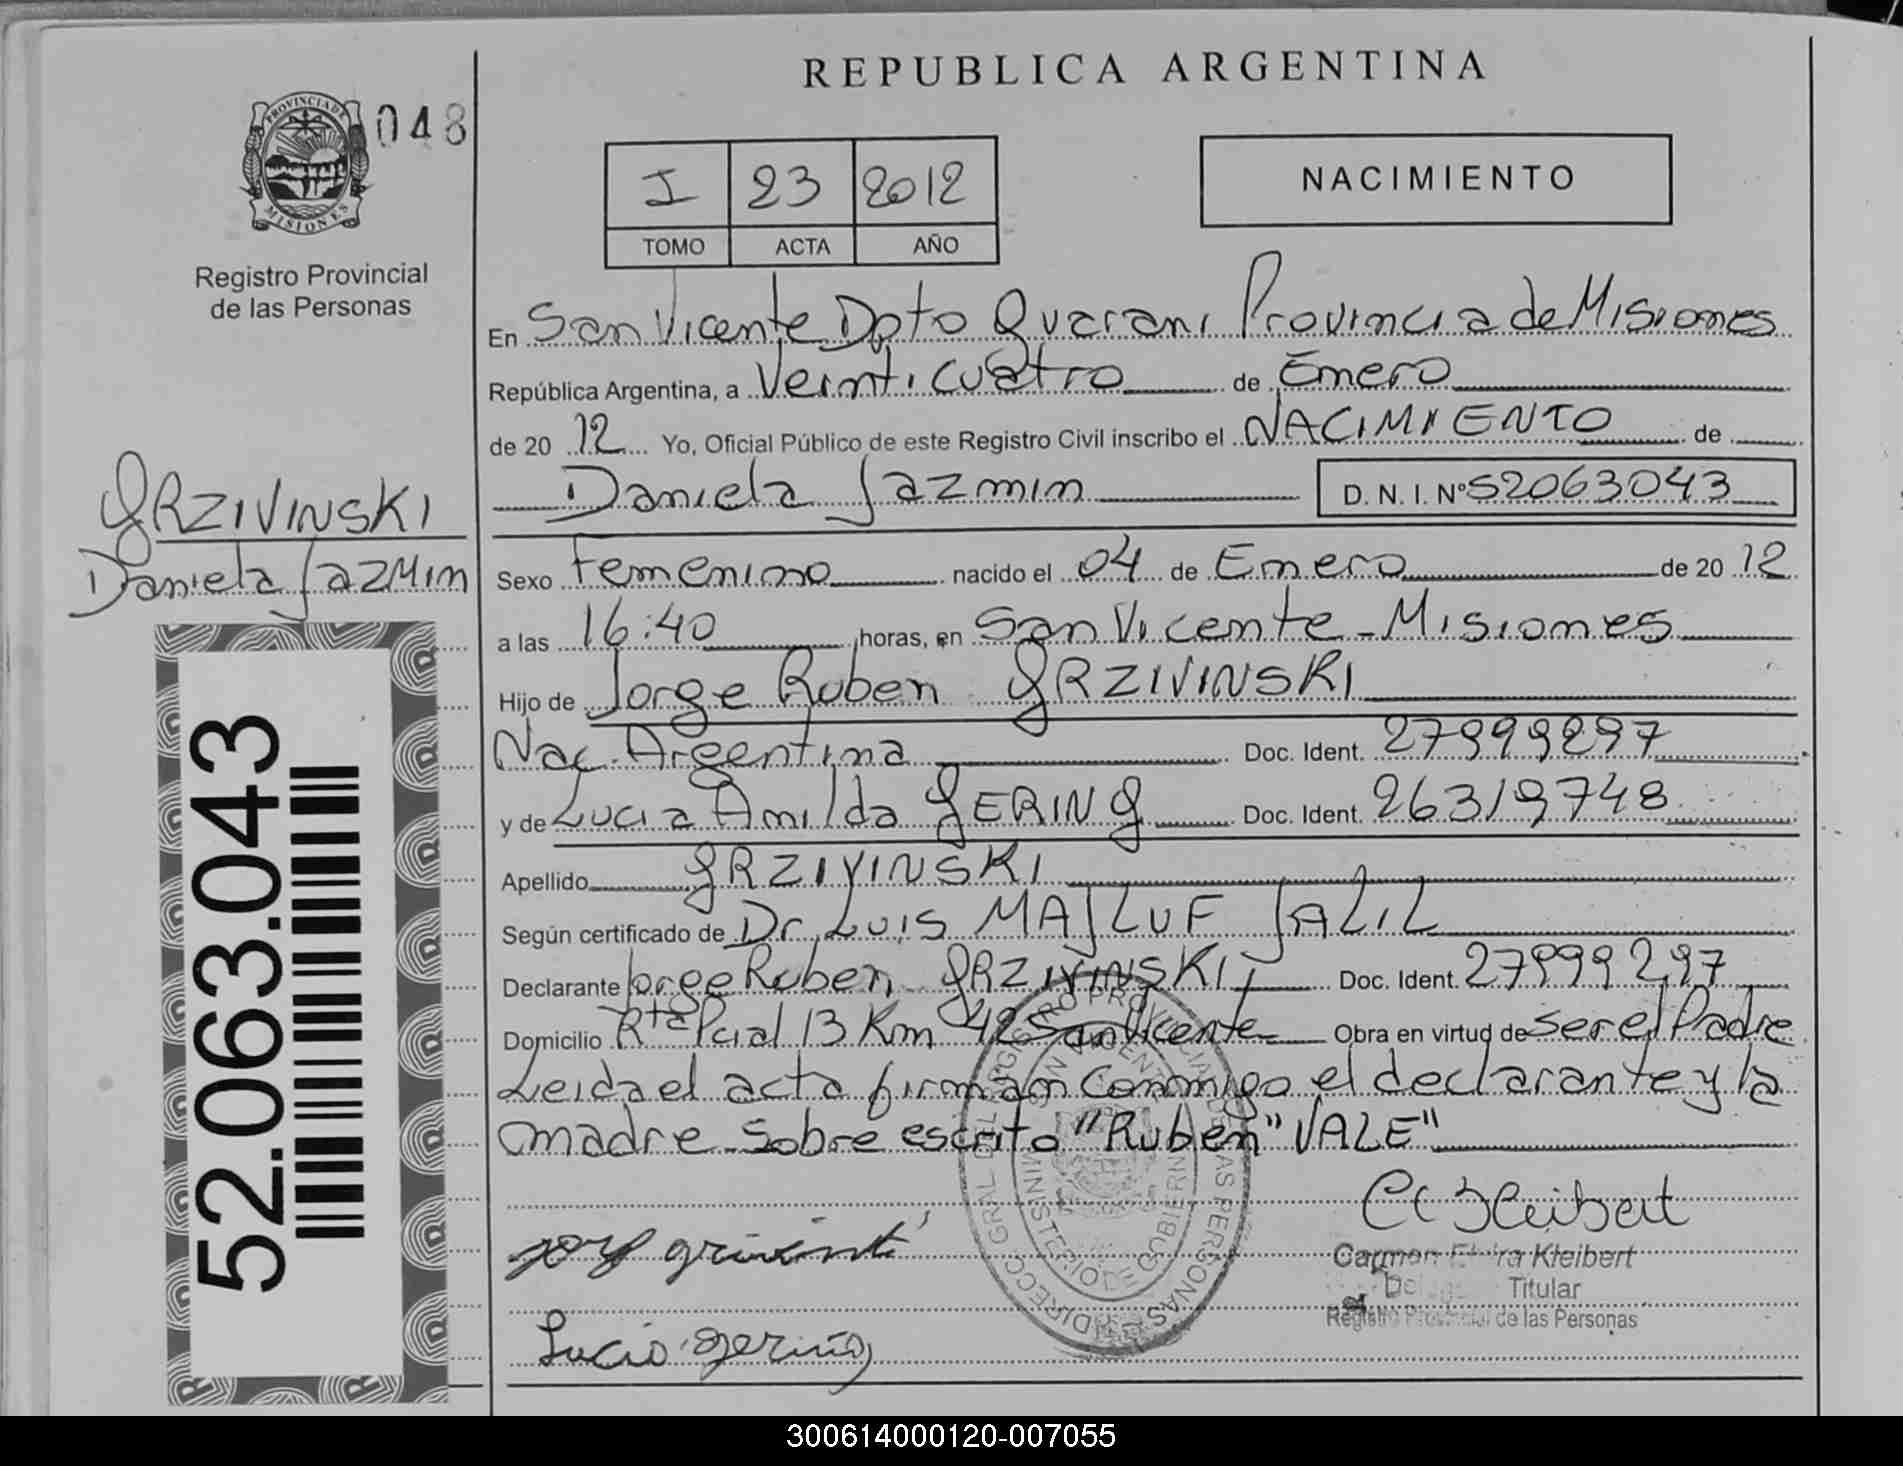 REPUBLICA ARGENTINA
PROVINCIA DE
MISIONES
048
Registro Provincial
de las Personas
I 23 2012
TOMO ACTA AÑO
NACIMIENTO
En San Vicente Dpto Guarani Provincia de Misiones
República Argentina, a Veinticuatro de Enero
de 20 12 Yo, Oficial Público de este Registro Civil inscribo el NACIMIENTO de
Daniela Jazmin D. N. I. Nº 52063043
GRZIVINSKI
Daniela Jazmin
Sexo Femenino nacido el 04 de Enero de 20 12
a las 16:40 horas, en San Vicente - Misiones
Hijo de Jorge Ruben GRZIVINSKI
Nac. Argentina Doc. Ident. 27999297
y de Lucia Amilda GERING Doc. Ident. 26319748
Apellido GRZIVINSKI
Según certificado de Dr. LUIS MAJLUF JALIL
Declarante Jorge Ruben GRZIVINSKI Doc. Ident. 27999297
Domicilio Rta Pcial 13 Km 42 San Vicente Obra en virtud de ser el Padre
Leida el acta firman conmigo el declarante y la
madre sobre escrito "Ruben" VALE"
52.063.043
Lucia Gering
Carmen Kleibert
Titular
Registro Provincial de las Personas
300614000120-007055